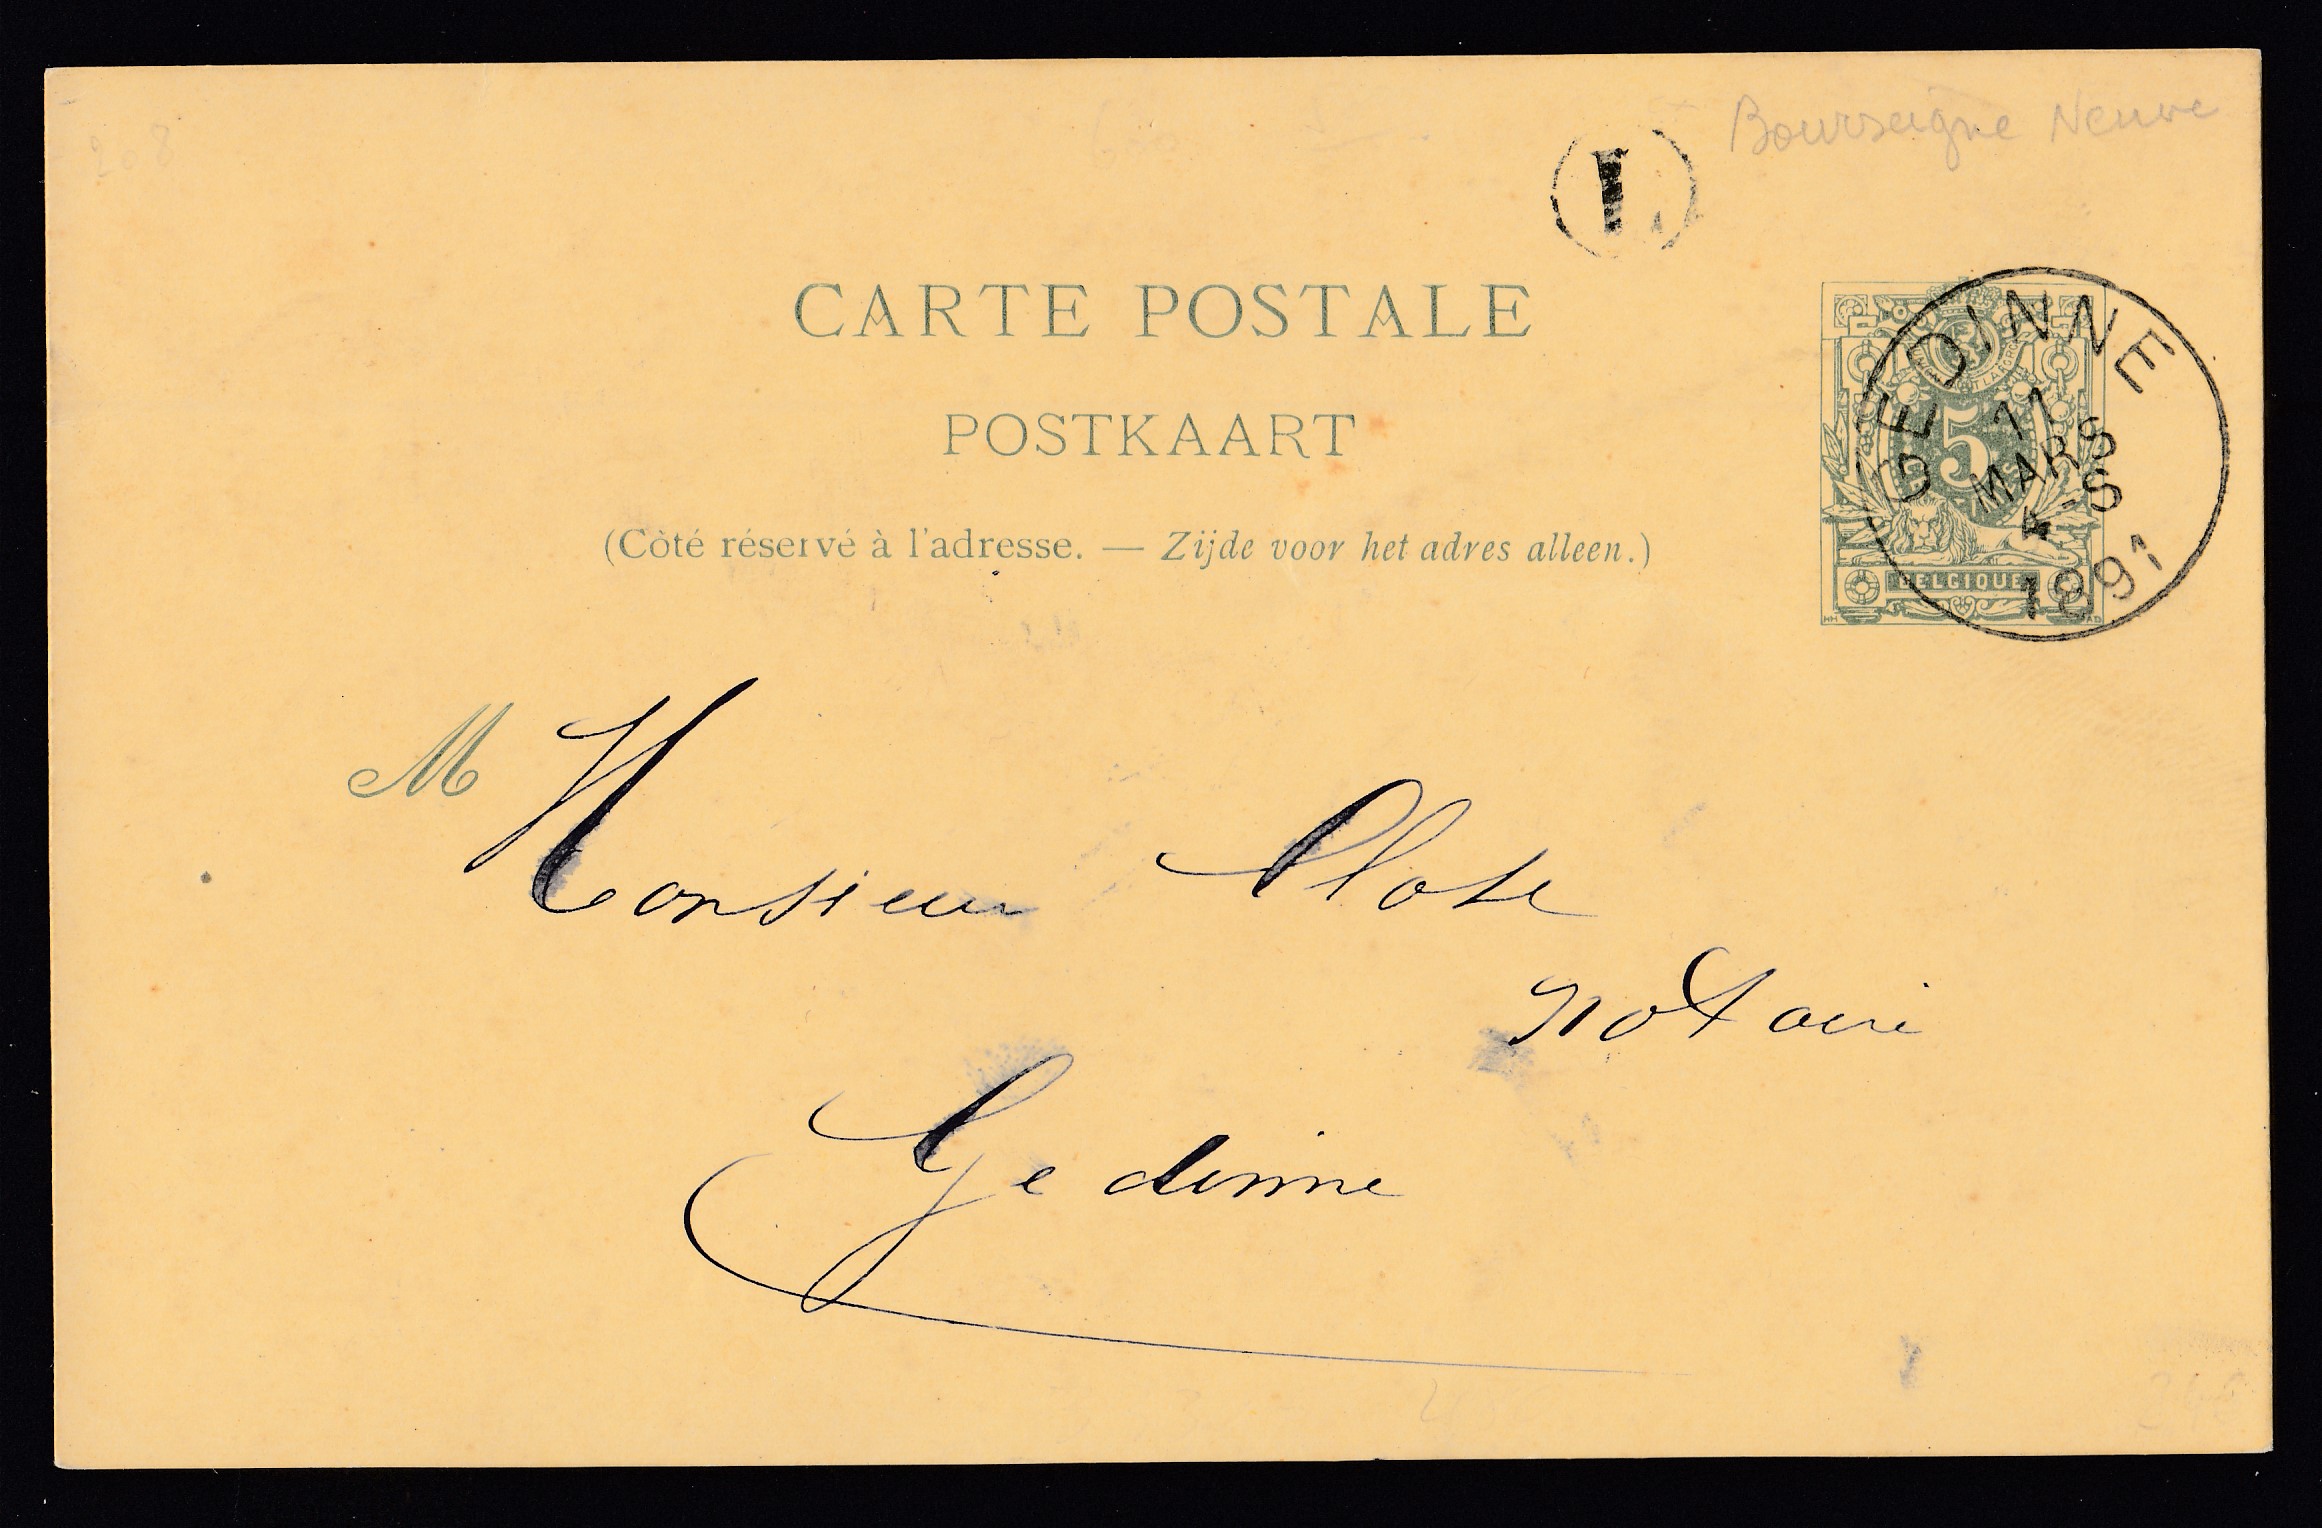 Bourseigne Neuve
208
I
CARTE POSTALE
POSTKAART
(Côté réservé à l'adresse. — Zijde voor het adres alleen.)
5
BELGIQUE
GEDINNE
11
MARS
4-S
1891
M Monsieur Close
Notaire
Gedinne